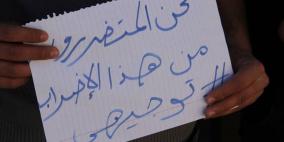 نحن المتضررون
من هذا الإضراب
#توجيهي